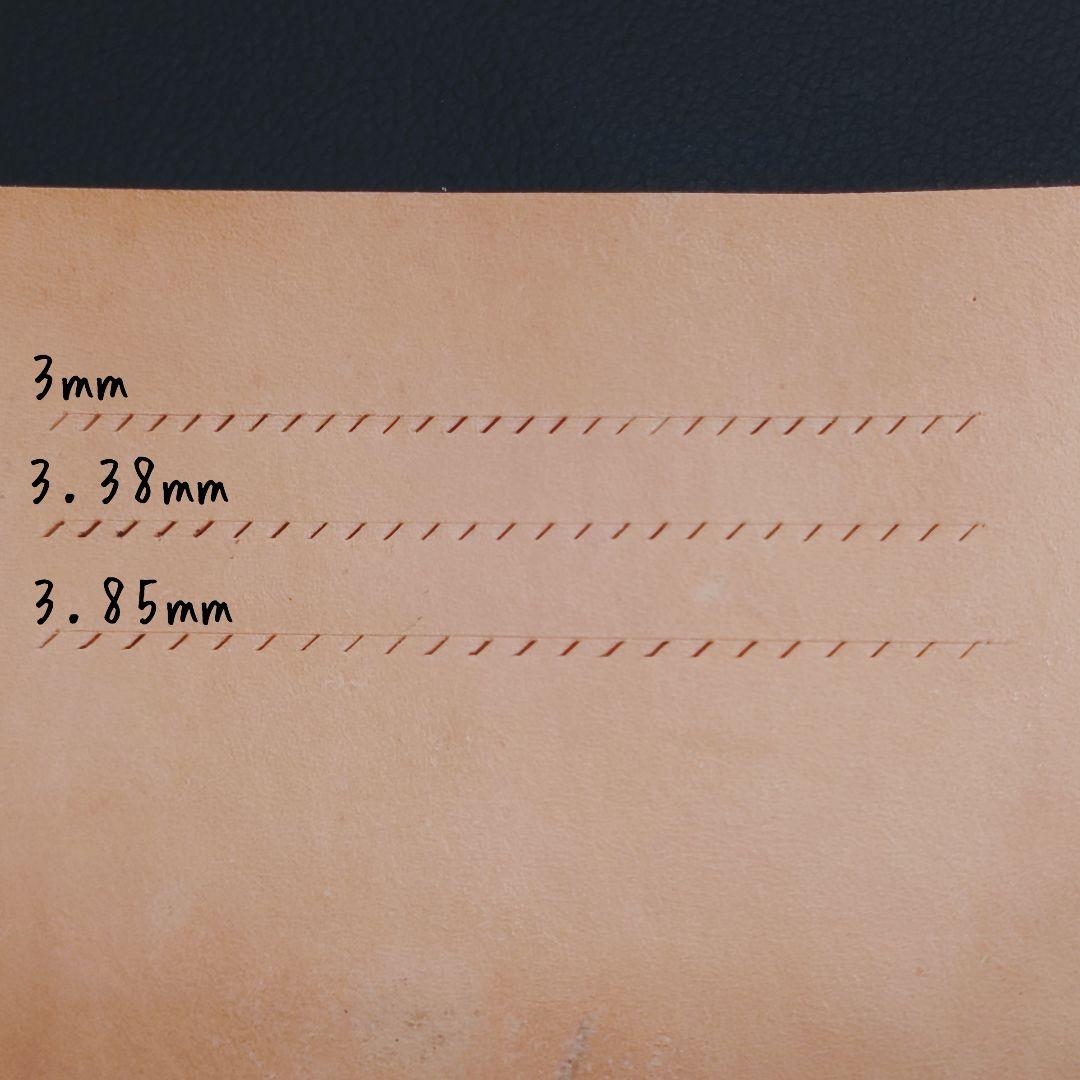 3mm
3.38mm
3.85mm